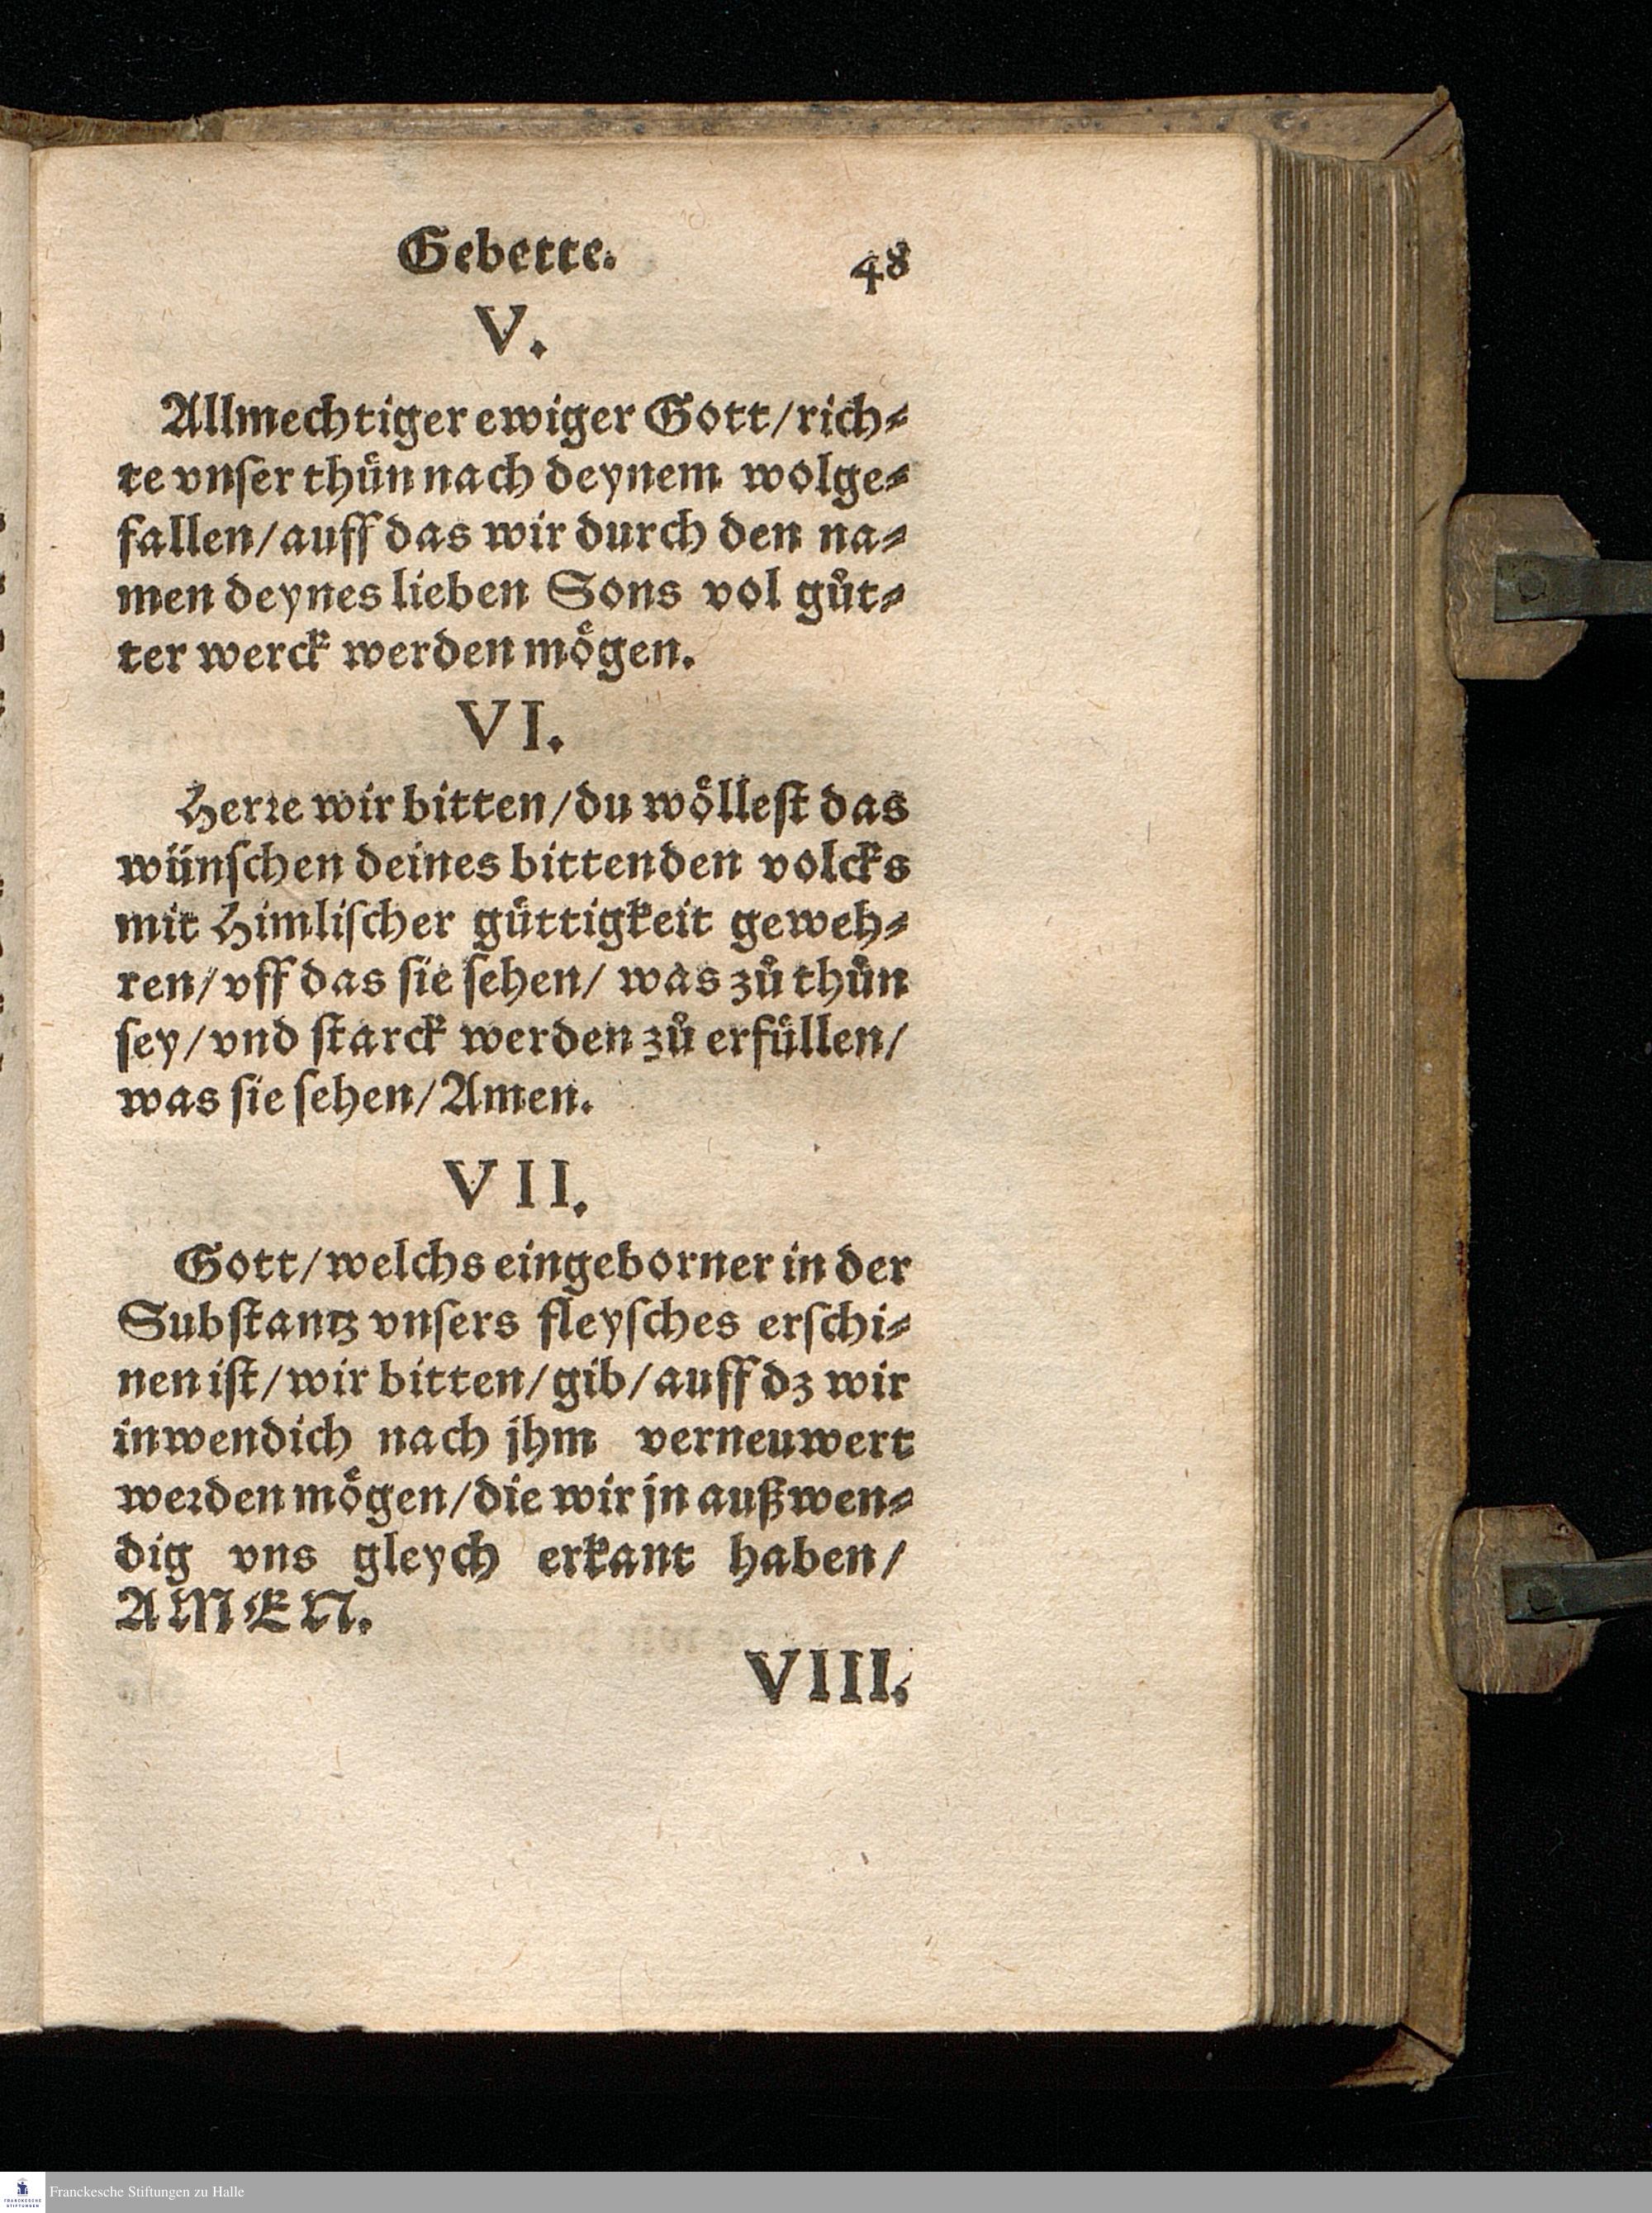 Gebette. 48
V.
Allmechtiger ewiger Gott/rich⸗
te vnſer thůn nach deynem wolge⸗
fallen/auff das wir durch den na⸗
men deynes lieben Sons vol gůt⸗
ter werck werden moͤgen.
VI.
Herꝛe wir bitten/du woͤlleſt das
wünſchen deines bittenden volcks
mit Himliſcher guͤttigkeit geweh⸗
ren/vff das ſie ſehen/ was zů thůn
ſey/vnd ſtarck werden zů erfuͤllen/
was ſie ſehen/Amen.
VII.
Gott/welchs eingeborner in der
Subſtantz vnſers fleyſches erſchi⸗
nen iſt/wir bitten/gib/auff dz wir
inwendich nach jhm verneuwert
weꝛden moͤgen/die wir jn außwen⸗
dig vns gleych erkant haben/
AMEN.
VIII.
FRANCKESCHE
STIFTUNGEN
Franckesche Stiftungen zu Halle